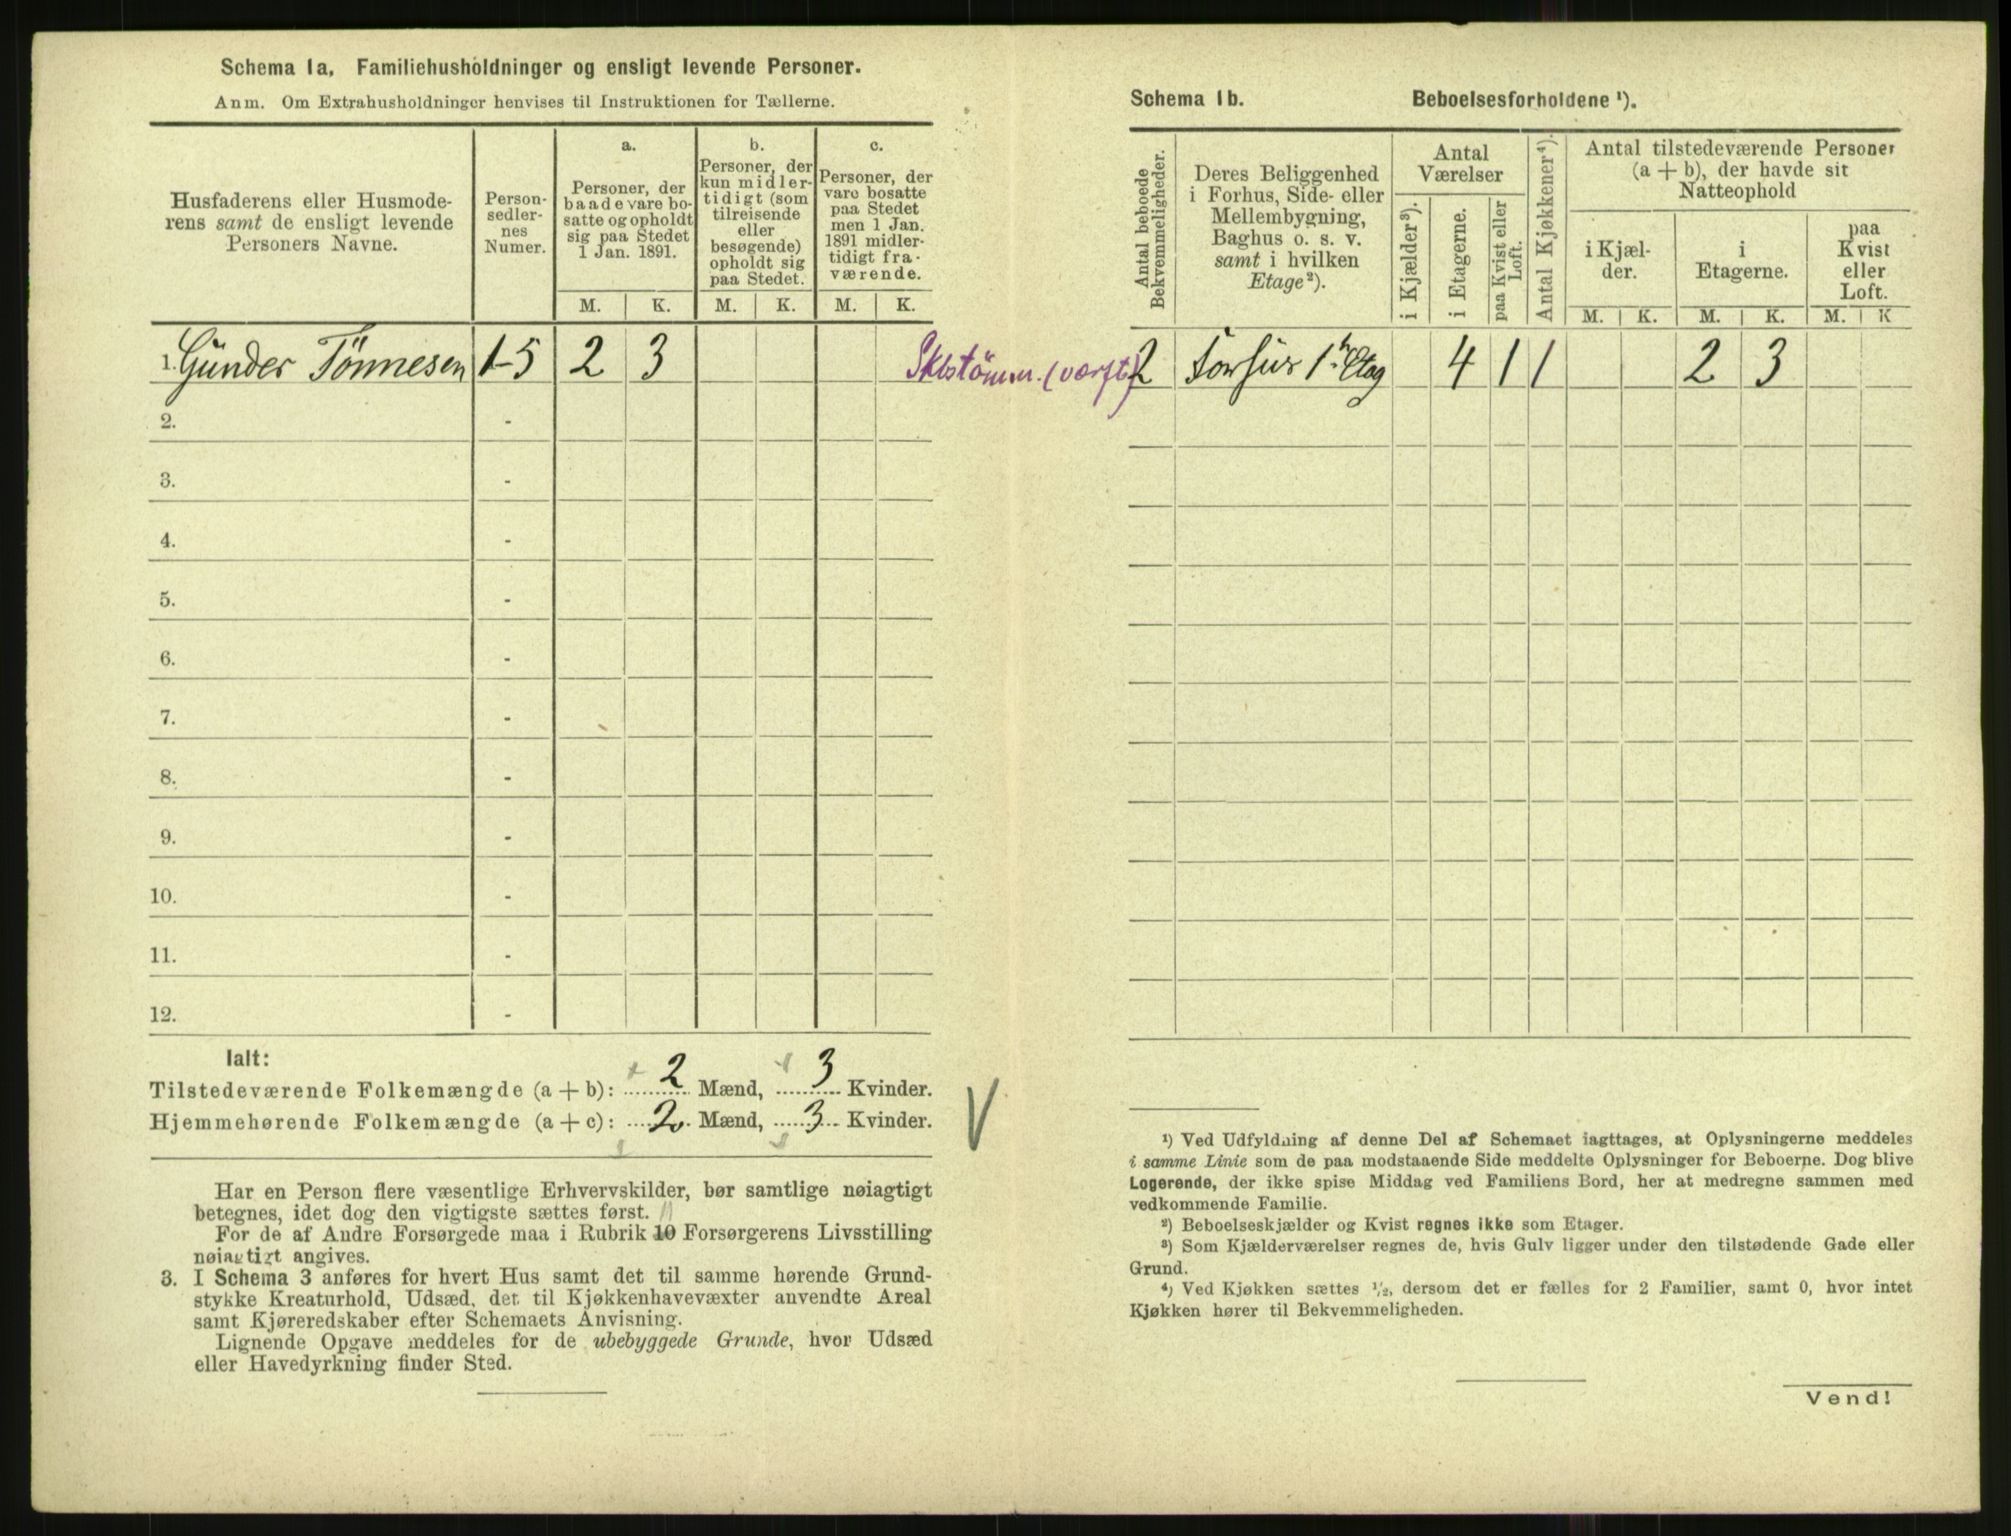 Schema 1a. Familiehusholdninger og ensligt levende Personer.
Anm. Om Extrahusholdninger henvises til Instruktionen for Tællerne.
Husfaderens eller Husmode-
rens samt de ensligt levende
Personers Navne.
Person-
sedler-
nes
Numer.
a.
Personer, der
baade vare bo-
satte og opholdt
sig paa Stedet
1 Jan. 1891.
b.
Personer, der
kun midler-
tidigt (som
tilreisende
eller
besøgende)
opholdt sig
paa Stedet.
c.
Personer, der
vare bosatte
paa Stedet
men 1 Jan.
1891 midler-
tidigt fra-
værende.
M. K. M. K. M. K.
1. Gunder Tönnesen 1-5 2 3
Skbstömm. (værft)
2. -
3. -
4. -
5. -
6. -
7. -
8. -
9. -
10. -
11. -
12. -
Ialt:
Tilstedeværende Folkemængde (a + b): 2 Mænd, 3 Kvinder.
Hjemmehørende Folkemængde (a + c): 2 Mænd, 3 Kvinder.
Har en Person flere væsentlige Erhvervskilder, bør samtlige nøiagtigt
betegnes, idet dog den vigtigste sættes først.
For de af Andre Forsørgede maa i Rubrik 10 Forsørgerens Livsstilling
nøiagtigt angives.
3. I Schema 3 anføres for hvert Hus samt det til samme hørende Grund-
stykke Kreaturhold, Udsæd, det til Kjøkkenhavevæxter anvendte Areal
samt Kjøreredskaber efter Schemaets Anvisning.
Lignende Opgave meddeles for de ubebyggede Grunde, hvor Udsæd
eller Havedyrkning finder Sted.
Schema 1b. Beboelsesforholdene ¹).
Antal beboede
Bekvemmeligheder.
Deres Beliggenhed
i Forhus, Side- eller
Mellembygning,
Baghus o. s. v.
samt i hvilken
Etage²).
Antal
Værelser
i Kjælder³).
i Etagerne.
paa Kvist eller
Loft.
Antal Kjøkkener⁴).
Antal tilstedeværende Personer
(a + b), der havde sit
Natteophold
i Kjæl-
der.
i
Etagerne.
paa
Kvist
eller
Loft.
M. K. M. K. M. K
2 Forhus 1ste Etag 4 1 1 2 3
¹) Ved Udfyldning af denne Del af Schemaet iagttages, at Oplysningerne meddeles
i samme Linie som de paa modstaaende Side meddelte Oplysninger for Beboerne. Dog blive
Logerende, der ikke spise Middag ved Familiens Bord, her at medregne sammen med
vedkommende Familie.
²) Beboelseskjælder og Kvist regnes ikke som Etager.
³) Som Kjælderværelser regnes de, hvis Gulv ligger under den tilstødende Gade eller
Grund.
⁴) Ved Kjøkken sættes ¹/₂, dersom det er fælles for 2 Familier, samt 0, hvor intet
Kjøkken hører til Bekvemmeligheden.
Vend!